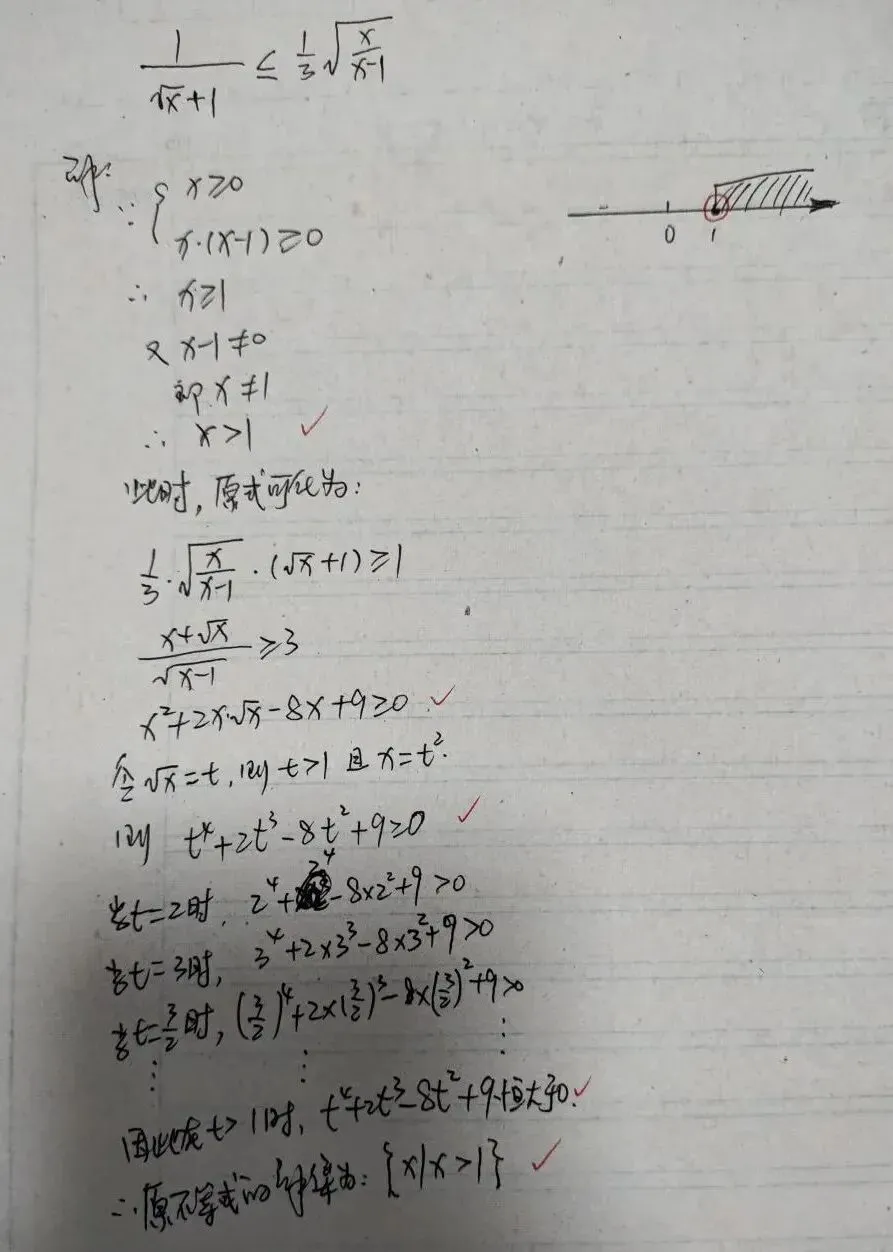 1/(√x+1) ≤ 1/3 √(x/(x-1))
解:
∵ { x≥0
x·(x-1)≥0
0 1
∴ x≥1
又 x-1≠0
即 x≠1
∴ x>1 ✓
此时, 原式可化为:
1/3·√(x/(x-1))·(√x+1)≥1
(x+√x)/√(x-1) ≥3
x²+2x·√x-8x+9≥0 ✓
令√x=t, 则t>1 且 x=t².
则 t⁴+2t³-8t²+9≥0 ✓
当t=2时, 2⁴+2⁴-8×2²+9>0
当t=3时, 3⁴+2×3³-8×3²+9>0
当t=3/2时, (3/2)⁴+2×(3/2)³-8×(3/2)²+9>0
⋮ ⋮ ⋮
因此在t>1时, t⁴+2t³-8t²+9恒大于0. ✓
∴原不等式的解集为: {x|x>1} ✓